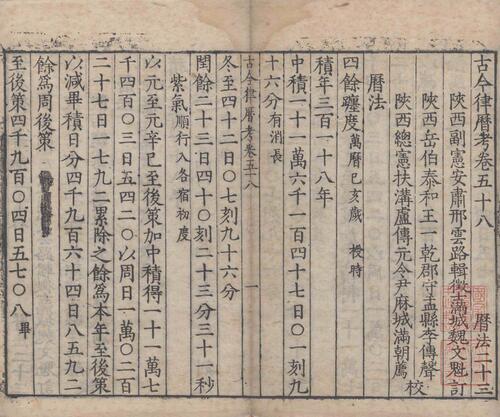 古今律曆考卷五十八 曆法二十三
陝西副憲安肅邢雲路輯徵士滿城魏文魁訂
陝西岳伯泰和王一乾郡守盂縣李傳聲
陝西總憲扶溝盧傳元令尹麻城滿朝薦 校
曆法
四餘躔度 萬曆己亥歲 授時
積年三百一十八年
中積一十一萬六千一百四十七日〇一刻九
十六分有消長
古今律曆考卷五八 一
冬至四十二日〇七刻九十六分
閏餘二十三日四十〇刻二十三分三十一秒
紫氣順行入各宿初度
以元至元辛巳至後策加中積得一十一萬七
千四百〇三日五四二〇以周日一萬〇二百
二十七日一七九二累除之餘爲本年至後策
以減畢積日分四千九百六十四日八五九二
餘爲周後策
至後策四千九百〇四日五七〇八 畢